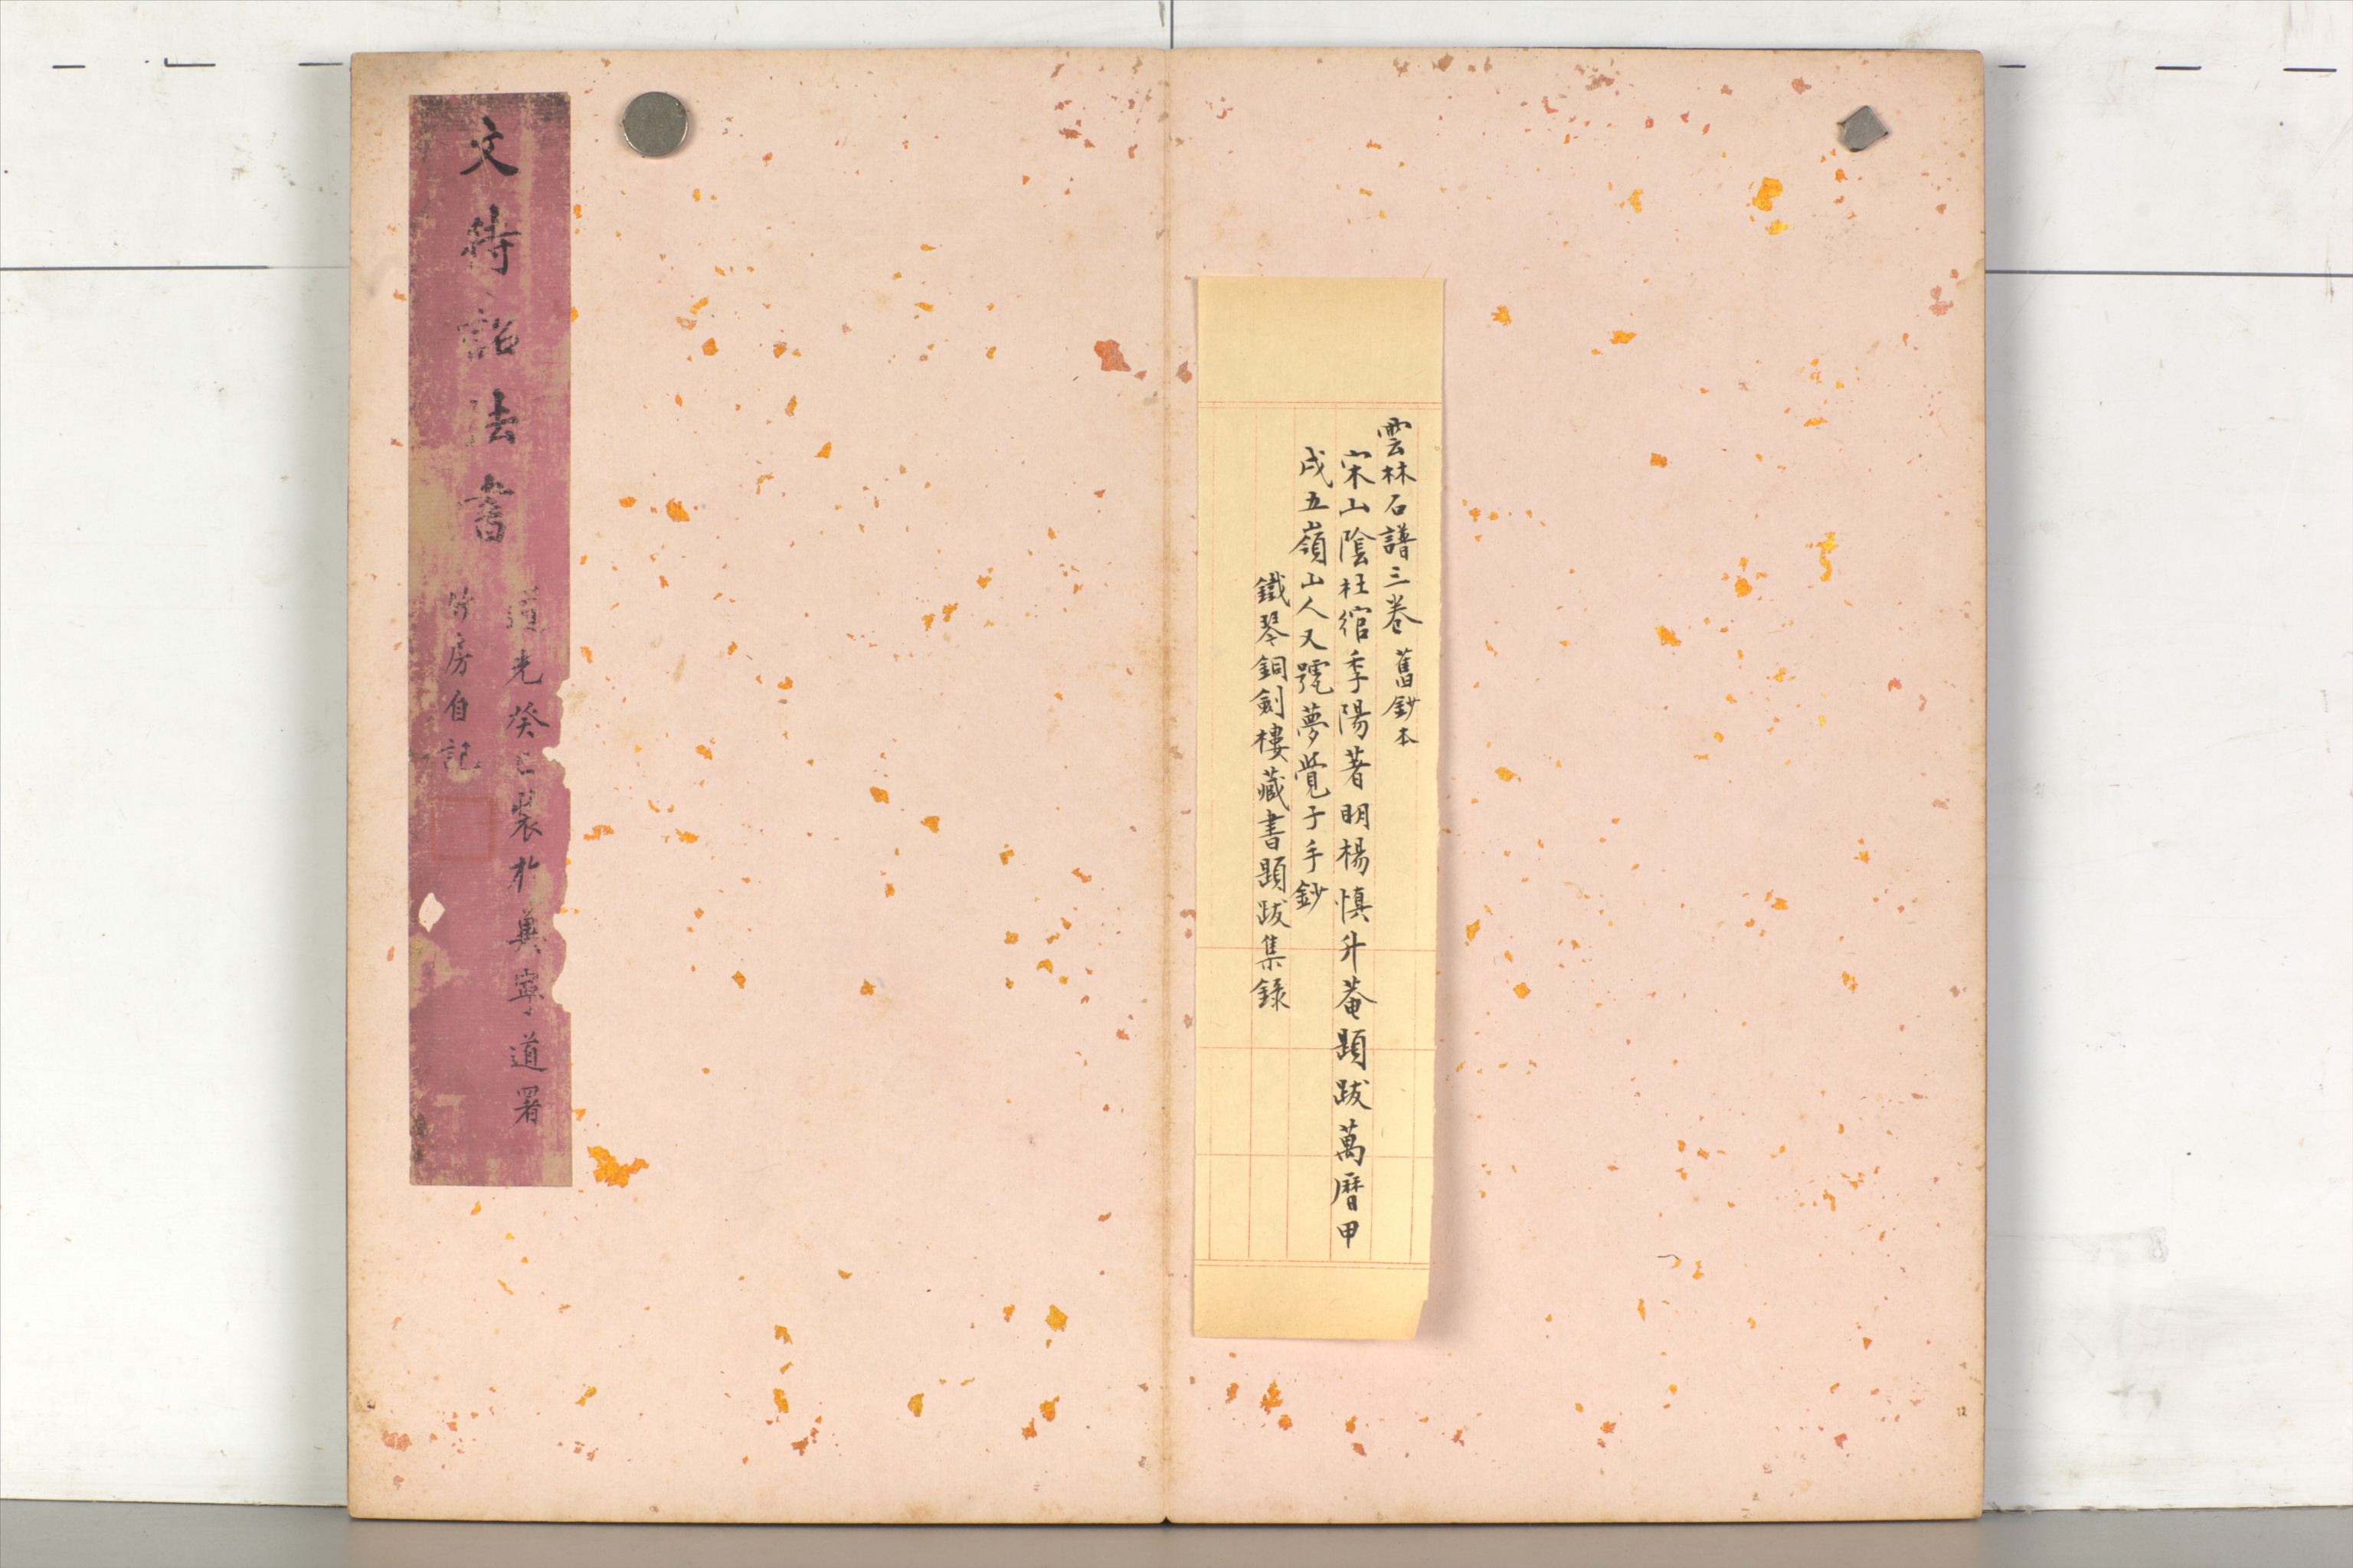 雲林石譜三卷 舊鈔本
宋山陰杜綰季陽著明楊慎升菴題跋萬曆甲
戌五嶺山人又號夢覺子手鈔
鐵琴銅劍樓藏書題跋集錄
文待詔法書
道光癸巳裝於冀寧道署
竹房自記